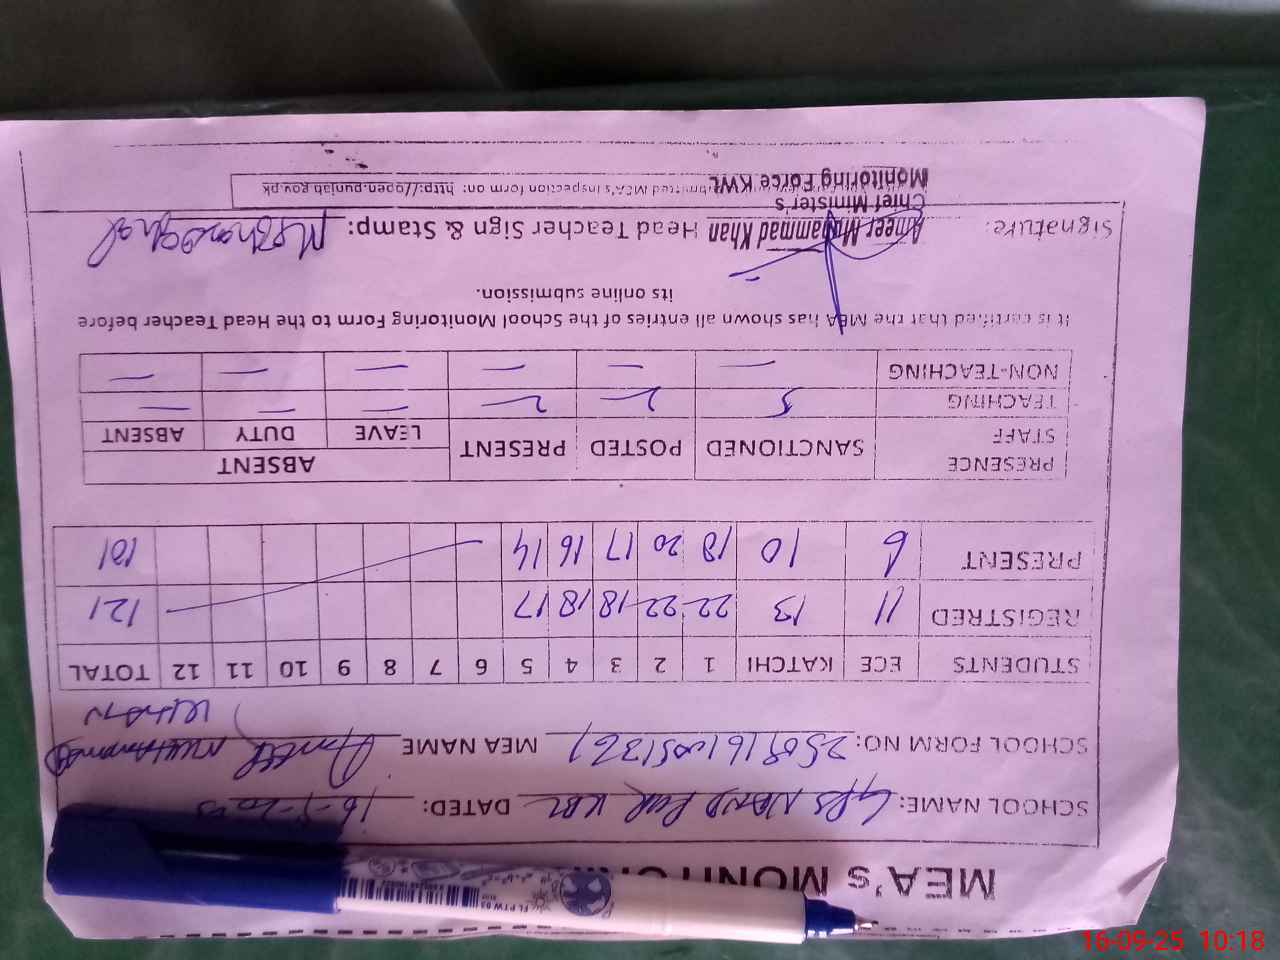 MEA's MONITORI
SCHOOL NAME: GPS NAND PUR KBL DATED: 16-9-2025
SCHOOL FORM NO: MEA NAME Ameer Muhammad
KHAN
STUDENTS ECE KATCHI 1 2 3 4 5 6 7 8 9 10 11 12 TOTAL
REGISTRED 11 13 22 22 18 18 17 121
PRESENT 6 10 18 20 17 16 14 101
PRESENCE STAFF SANCTIONED POSTED PRESENT ABSENT
LEAVE DUTY ABSENT
TEACHING 5 2 2 — — —
NON-TEACHING — — — — — —
It is certified that the MEA has shown all entries of the School Monitoring Form to the Head Teacher before
its online submission.
Signature: Ameer Muhammad Khan Head Teacher Sign & Stamp:
Chief Minister's
Monitoring Force KWL
submitted MEA's inspection form on: http://open.punjab.gov.pk
FLPTW03
16-09-25 10:18